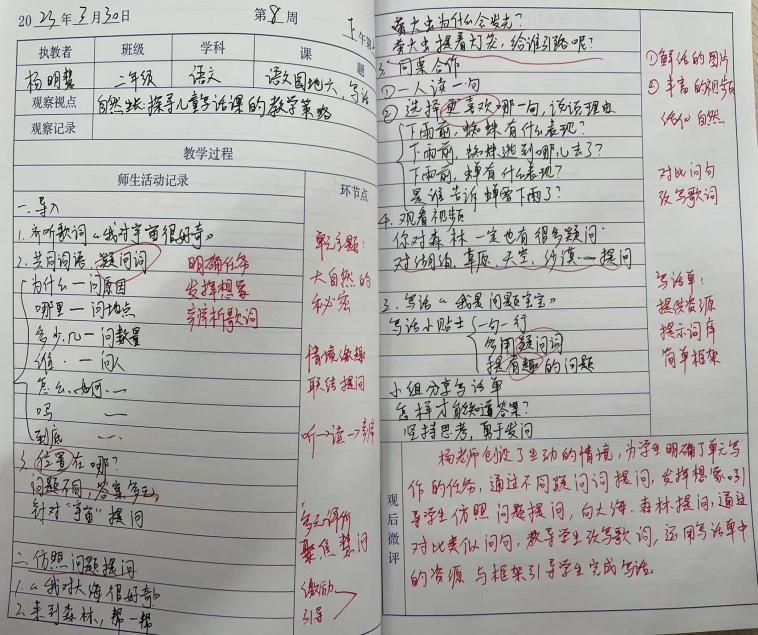 2023年3月30日
第8周
上午第
执教者
班级
学科
课
题
杨明慧
二年级
语文
语文园地六、写话
观察视点
自然生长:探寻儿童写话课的教学策略
观察记录
教学过程
师生活动记录
环节点
一.导入
1.齐听歌词《我对宇宙很好奇》
2.共同词语 疑问词
为什么—问原因
哪里—问地点
多少、几—问数量
谁.—问人
怎么、如何.—
吗 —
到底 —
3.位置在哪?
问题不同,答案多元
针对"宇宙"提问
二.仿照问题提问
1.《我对大海很好奇》
2.来到森林,帮一帮
明确任务
发挥想象
辨析歌词
单元主题:
大自然的
秘密
情境体验
联结提问
听→读→辨
多元评价
聚焦 问
激励
引导
萤火虫为什么会发光?
萤火虫提着灯笼,给谁引路呢?
3.同桌合作
①一人读一句
②选择更喜欢哪一句,说说理由
下雨前,蜘蛛有什么表现?
下雨前,蜘蛛逃到哪儿去了?
下雨前,蝉有什么表现?
是谁告诉蝉要下雨了?
4.观看视频
你对森林一定也有很多疑问.
对湖泊、草原、天空、沙漠—提问
三.写话《我是问题宝宝》
写话小贴士
一句一行
多用疑问词
提有趣的问题
小组分享写话单
怎样才能知道答案?
坚持思考,勇于发问
①鲜活的图片
②丰富的视频
体悟自然
对比问句
改写歌词
写话单:
提供资源
提示词库
简单框架
观后微评
杨老师创设了生动的情境,为学生明确了单元写
作的任务,通过不同疑问词提问,发挥想象,引
导学生仿照问题提问,向大海、森林提问,通过
对比类似问句,教导学生改写歌词,运用写话单中
的资源与框架引导学生完成写话。